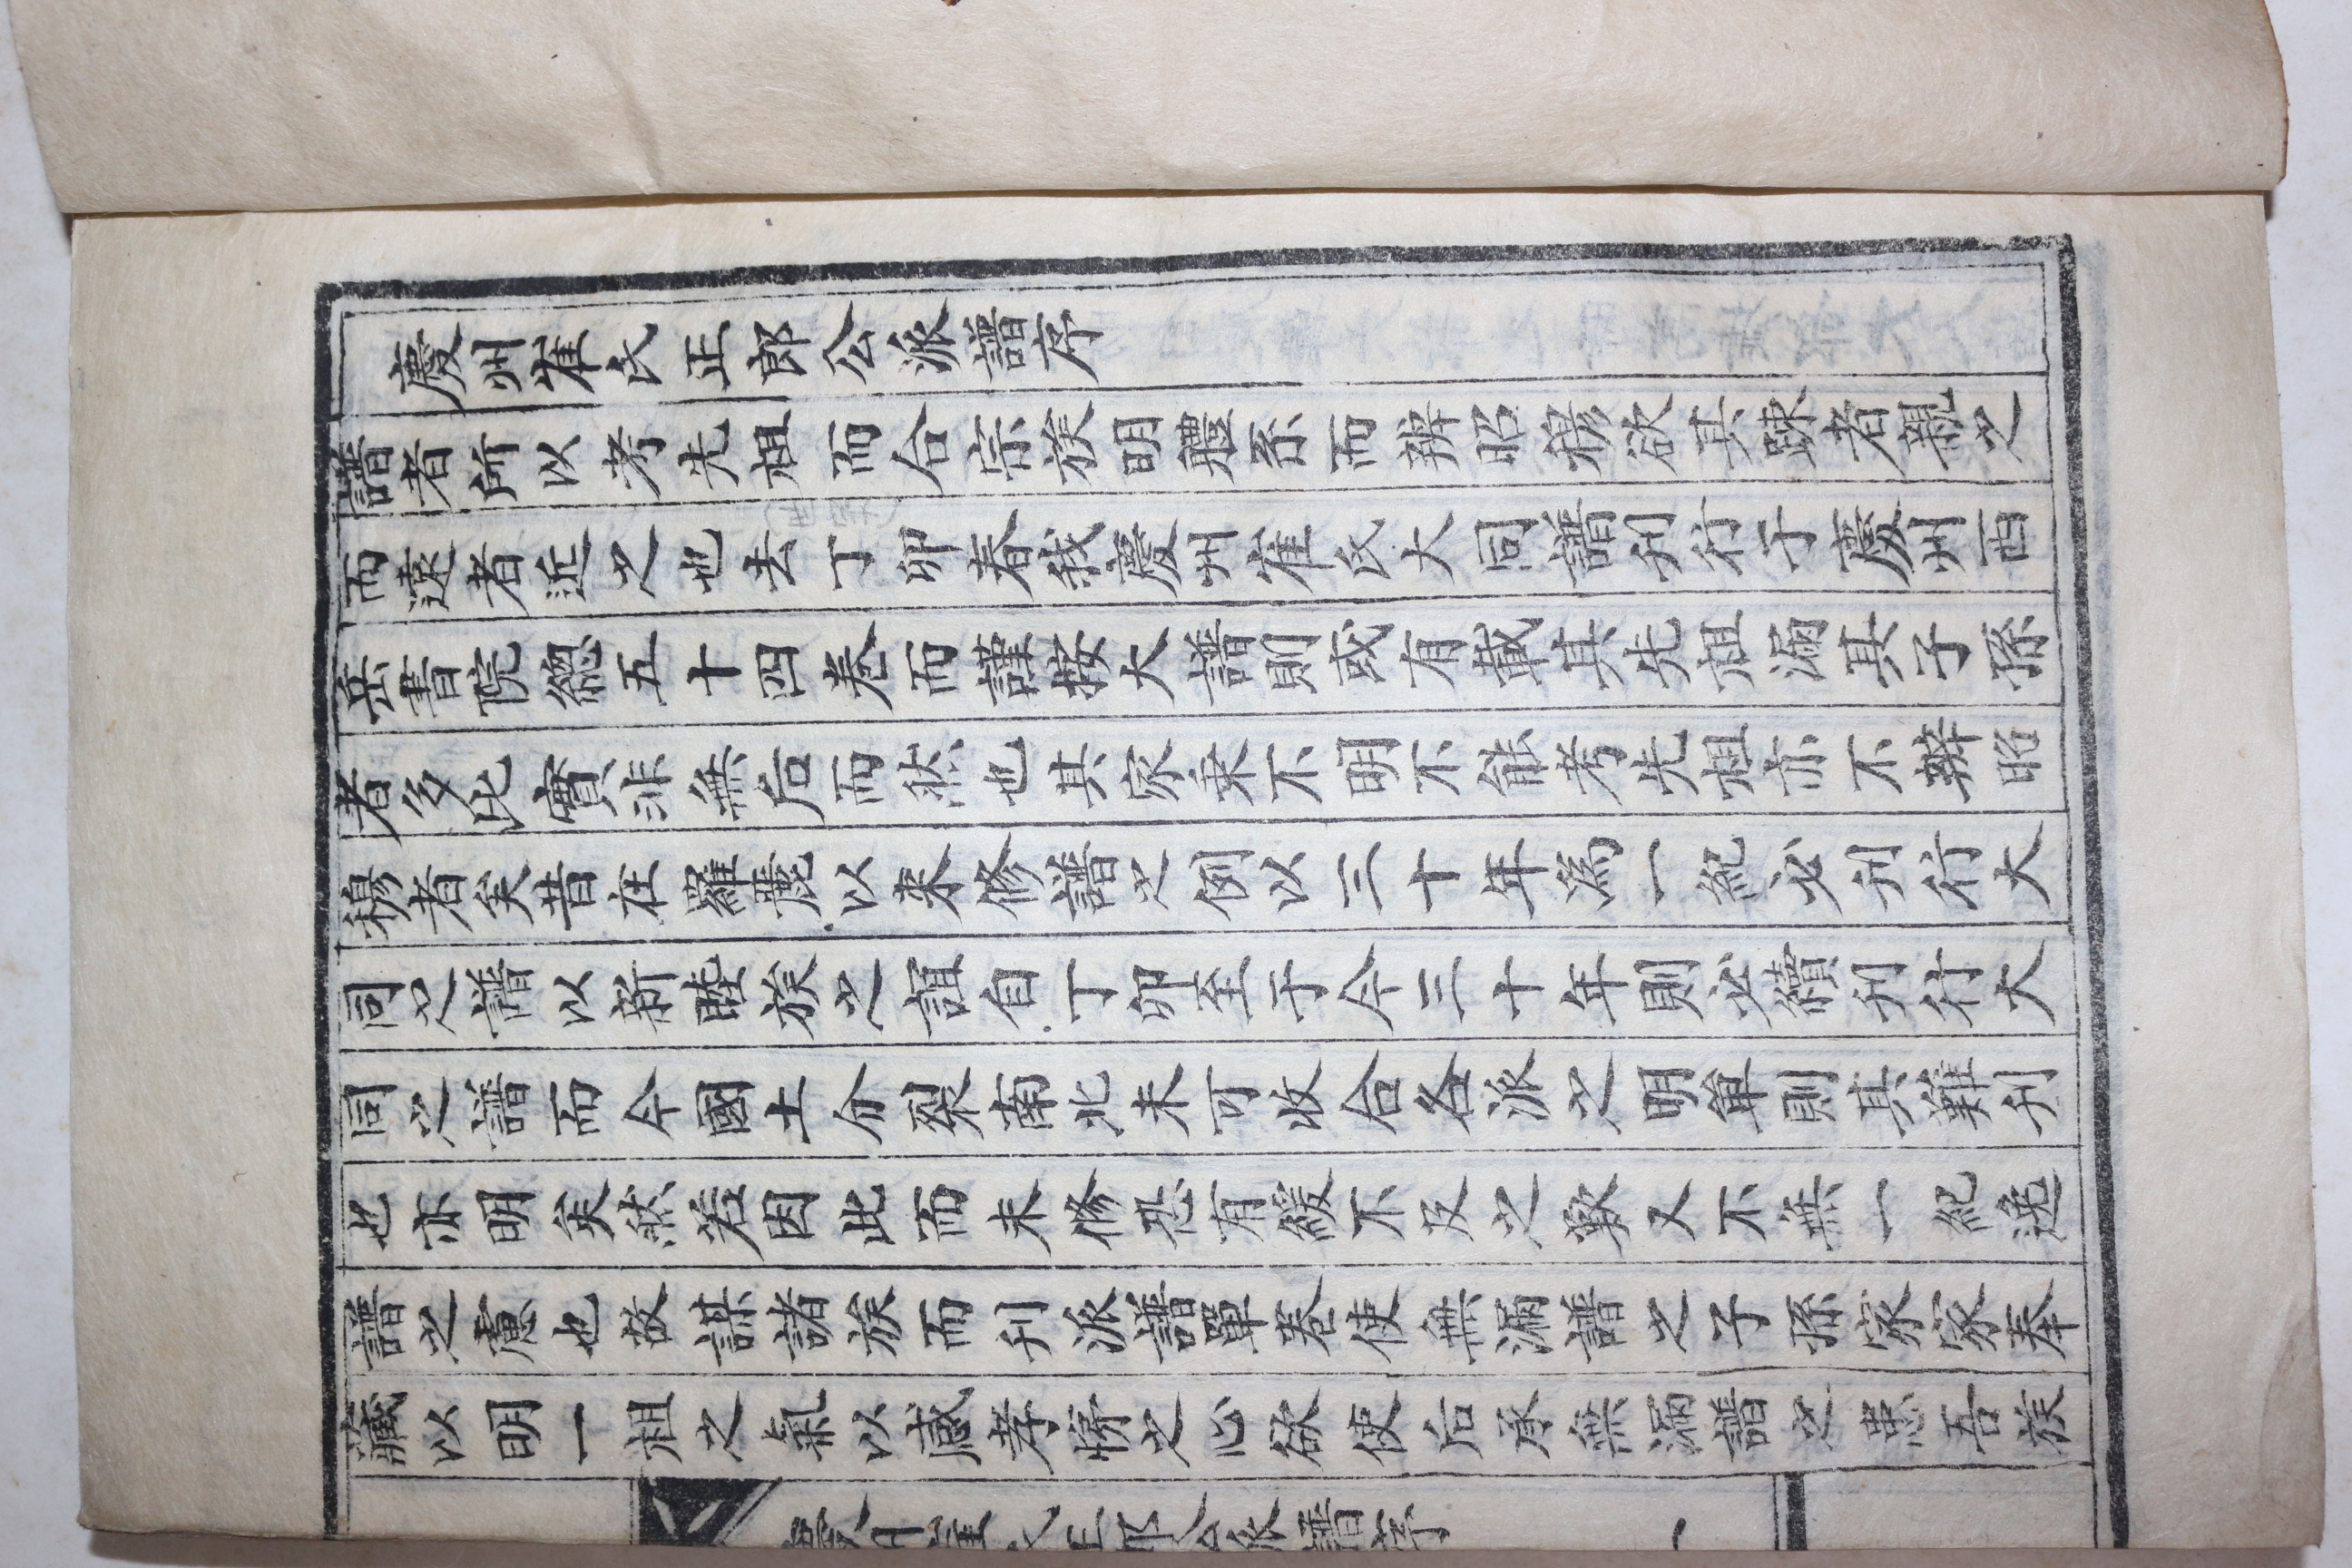 慶州崔氏正郎公派譜序
譜者所以考先祖而合宗族明軆系而辨昭穆欲其踈者親之
而遠者近之也去丁卯春我慶州崔氏大同譜刋行于慶州西
岳書院總五十四卷而謹按大譜則或有載其先祖漏其子孫
者多比實非無后而然也其家乘不明不能考先祖亦不辨昭
穆者矣昔在羅麗以来修譜之例以三十年為一紀必刋行大
同之譜以新睦族之誼自丁卯至于今三十年則必續刋行大
同之譜而今國土分裂南北未可收合各派之明單則其難刋
也亦明矣然若因此而未修恐有緩不及之歎又不無一紀逸
譜之慮也故謀諸族而刋派譜單卷使無漏譜之子孫家家奉
藏以明一祖之氣以感孝悌之心欲使后承無漏譜之患吾族
慶州崔氏正郎公派譜序 一